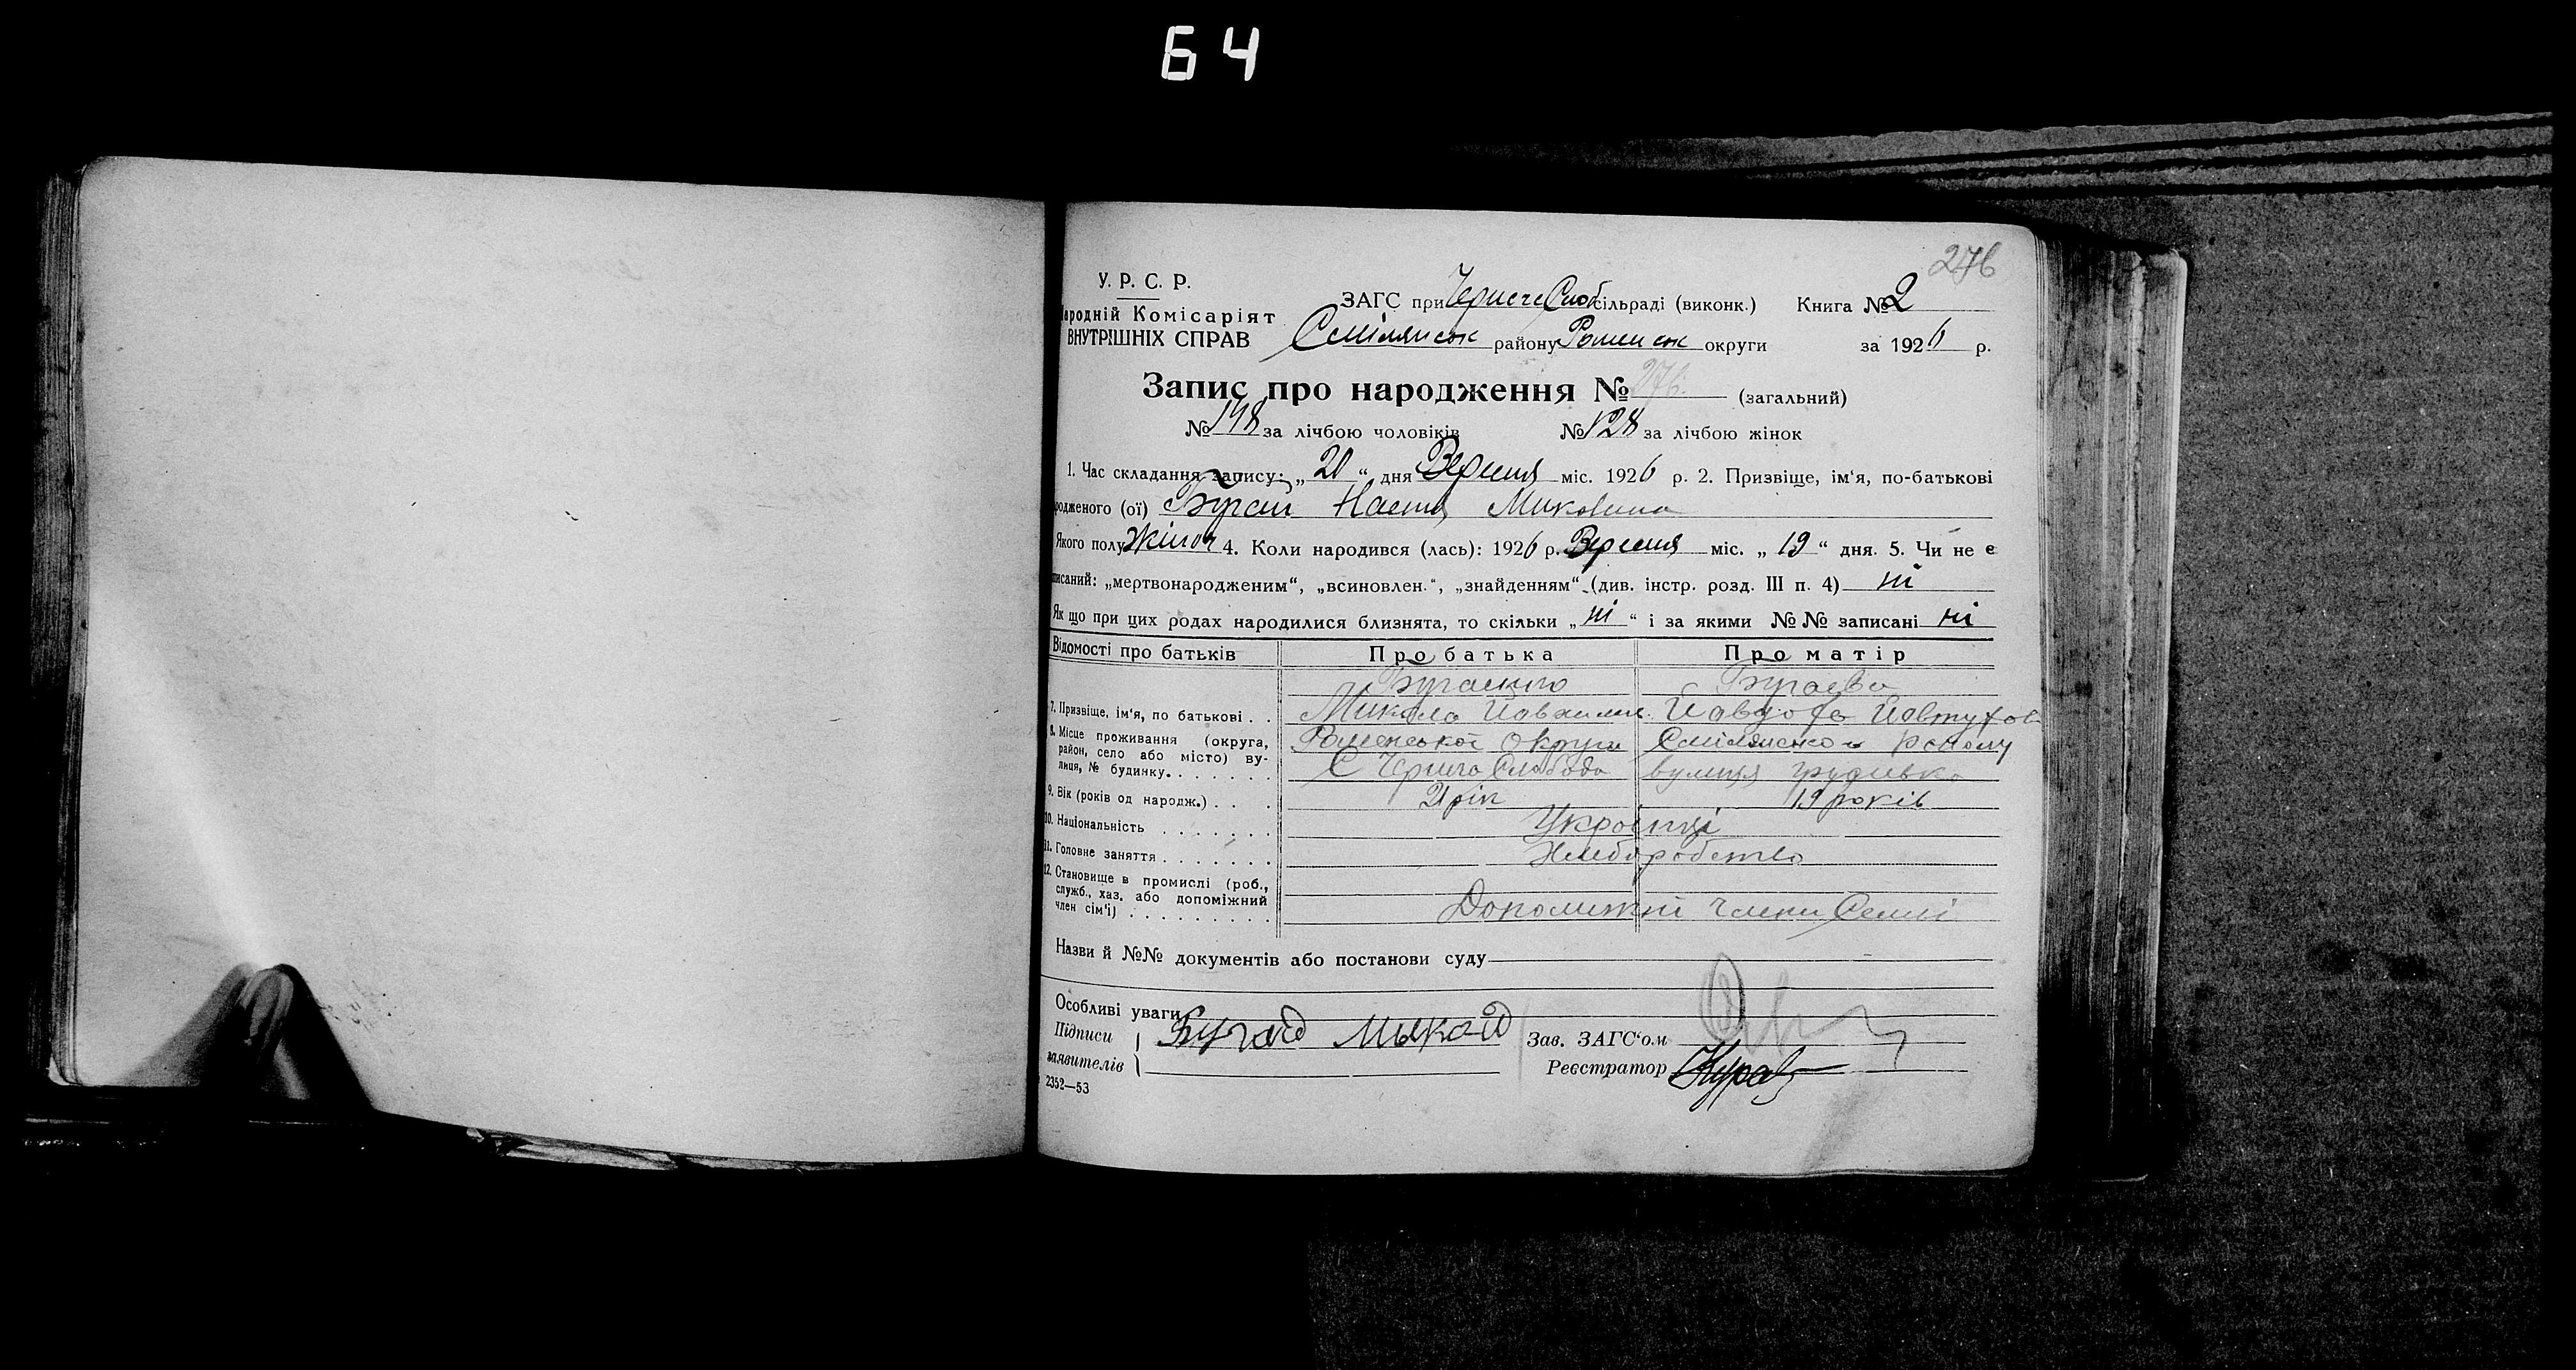 64
276
У. Р. С. Р.
Народній Комісаріят
ВНУТРІШНІХ СПРАВ
ЗАГС при Чернече Слоб сільраді (виконк.) Книга № 2
Смілянськ району Роменськ округи за 1926 р.
Запис про народження № 276. (загальний)
№ 148 за лічбою чоловіків № 128 за лічбою жінок
1. Час складання запису: „ 20 “ дня Вересня міс. 1926 р. 2. Призвіще, ім‘я, по-батькові
родженого (ої) Бугай Настя Миколівна
Якого полу Жіноч 4. Коли народився (лась): 1926 р. Вересня міс. „ 19 “ дня. 5. Чи не є
писаний: „мертвонародженим“, „всиновлен.“, „знайденням“ (див. інстр. розд. III п. 4) ні
Як що при цих родах народилися близнята, то скільки „ ні “ і за якими №№ записані ні
Відомості про батьків Про батька Про матір
Бугаєва
7. Призвіще, ім‘я, по батькові . . Микола Йавдоха
8. Місце проживання (округа, Роменської Округи Смілянського району
район, село або місто) ву-
лиця, № будинку. С Чернеча Слобода вулиця
9. Вік (років од народж.) . . . 21 рік 19 років
10. Національність Українці
11. Головне заняття Хліборобство
12. Становище в промислі (роб.,
служб., хаз. або допоміжний
член сім‘ї) Допоміжні члени Семьї
Назви й №№ документів або постанови суду
Особливі уваги
Підписи
заявителів Бугай Мыкола
Зав. ЗАГС‘ом
Реєстратор
2352—53